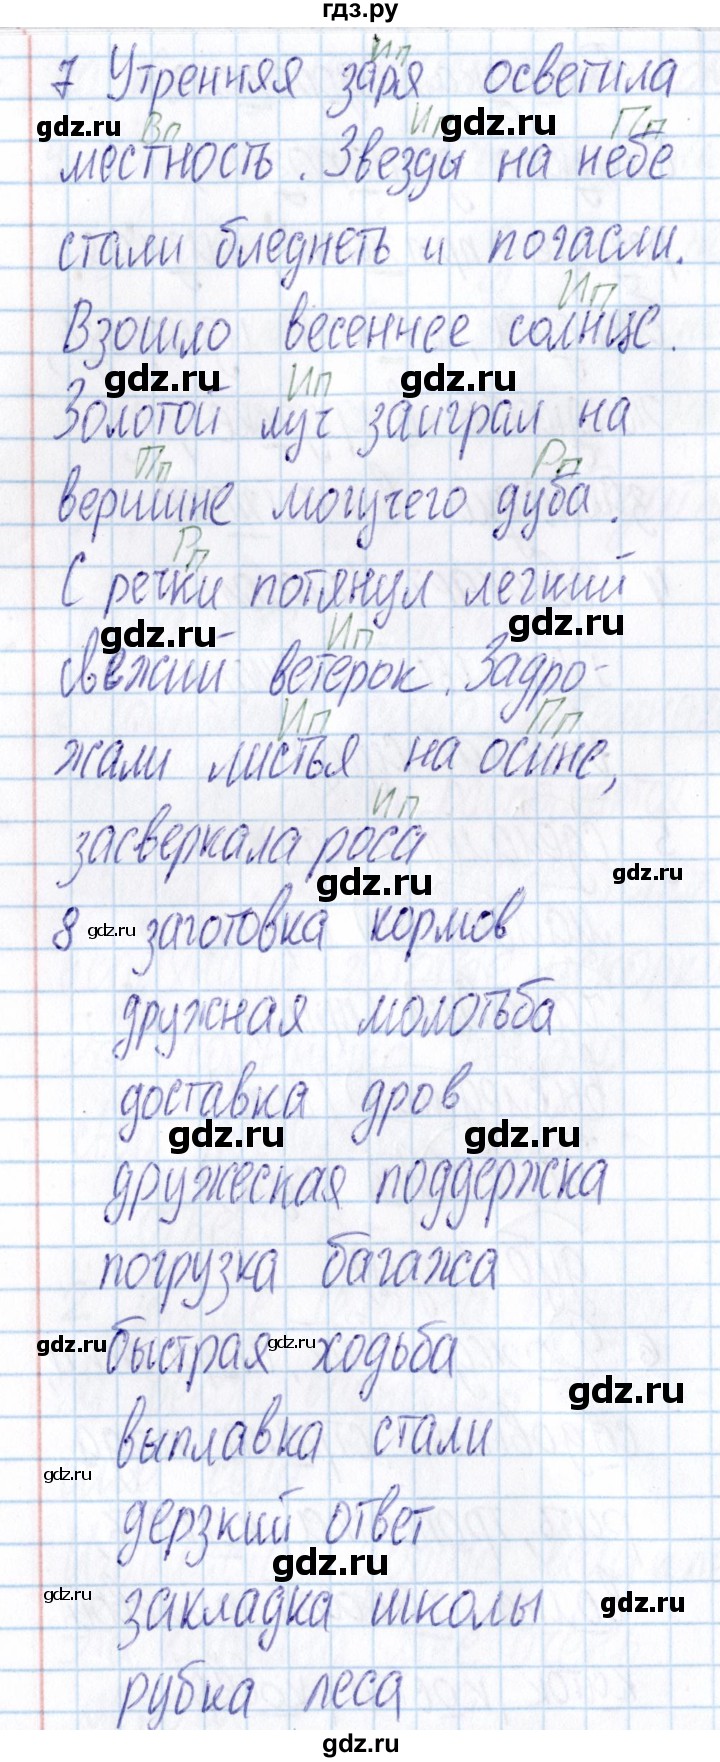 гдз.ру
Ип
7 Утренняя заря осветила
gdz.ru Вп Ип gdz.ru Пп
местность. Звезды на небе
стали бледнеть и погасли.
Ип
Взошло весеннее солнце.
gdz.ru Ип gdz.ru
Золотой луч заиграл на
Пп Рп
вершине могучего дуба.
Рп
С речки потянул легкий
gdz.ru Ип gdz.ru
свежий ветерок. Задро-
Ип Пп
жали листья на осине,
Ип
засверкала роса
gdz.ru gdz.ru
8 gdz.ru заготовка кормов
дружная молотьба
доставка дров
gdz.ru gdz.ru
дружеская поддержка
погрузка багажа
gdz.ru быстрая gdz.ru ходьба
gdz.ru
выплавка стали
gdz.ru
дерзкий ответ
gdz.ru
gdz.ru закладка школы gdz.ru
рубка леса
gdz.ru